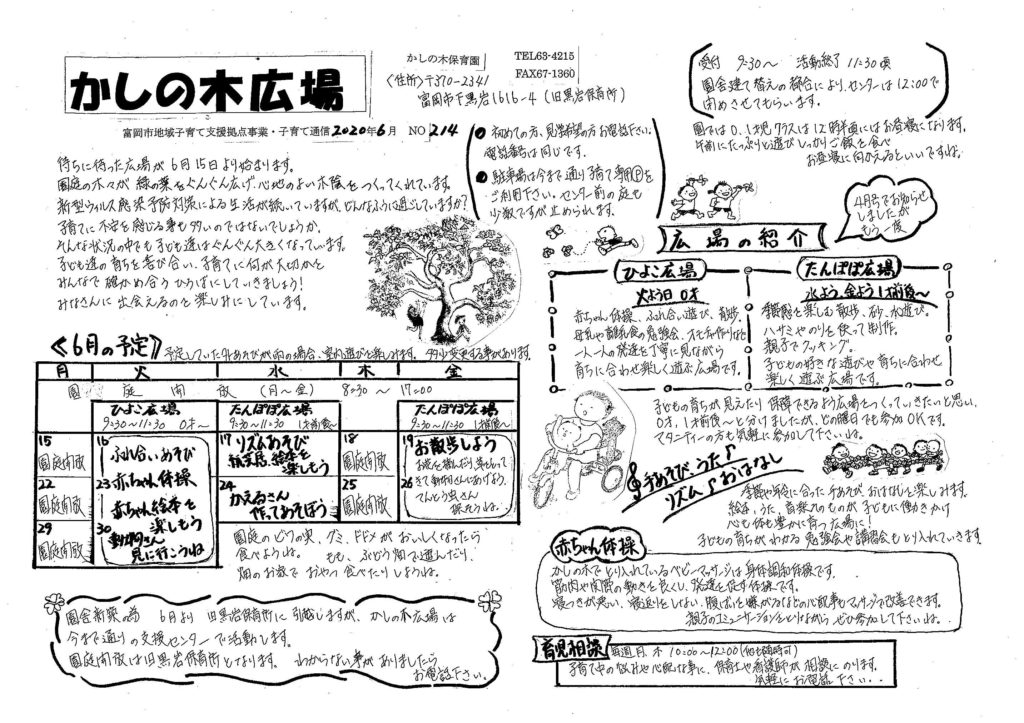 かしの木広場
かしの木保育園
TEL63-4215
FAX67-1360
〈住所〉〒370-2341
富岡市下黒岩1616-4（旧黒岩保育所）
富岡市地域子育て支援拠点事業・子育て通信 2020年6月 NO 214
待ちに待った広場が6月15日より始まります。
園庭の木々が緑の葉をぐんぐん広げ、心地のよい木陰をつくってくれています。
新型ウィルス感染予防対策による生活が続いていますが、どんなふうに過ごしていますか？
子育てに不安を感じる事も多いのではないでしょうか。
そんな状況の中でも子ども達はぐんぐん大きくなっています。
子ども達の育ちを喜び合い、子育てに何が大切かを
みんなで確かめ合うひろばにしていきましょう！
みなさんに出会えるのを楽しみにしています。
●初めての方、見学希望の方お電話下さい。
電話番号は同じです。
●駐車場は今まで通り子育て専用Ⓟを
ご利用下さい。センター前の庭も
少数ですが止められます。
受付 9:30～ 活動終了 11:30頃
園舎建て替えの都合により、センターは12:00で
閉めさせてもらいます。
園では0、1才児クラスは12時半頃にはお昼寝になります。
午前にたっぷりと遊びしっかりご飯を食べ
お昼寝に向かえるといいですね。
4月号でお知らせ
しましたが
もう一度
広場の紹介
ひよこ広場
火よう日 0才
赤ちゃん体操、ふれ合い遊び、散歩。
母乳や離乳食の勉強会、オモチャ作りなど
一人一人の発達を丁寧に見ながら
育ちに合わせ楽しく遊ぶ広場です。
たんぽぽ広場
水よう、金よう 1才前後～
季節を楽しむ散歩、砂、水遊び。
ハサミやのりを使って制作。
親子でクッキング。
子どもの好きな遊びや育ちに合わせ
楽しく遊ぶ広場です。
子どもの育ちが見えたり保障できるよう広場をつくっていきたいと思い、
0才、1才前後～と分けましたが、どの曜日でも参加OKです。
マタニティーの方も気軽に参加して下さいね。
《6月の予定》
予定していた外あそびが雨の場合、室内遊びを楽しみます。多少変更する事があります。
月 火 水 木 金
園庭開放（月～金） 8:30～17:00
ひよこ広場 9:30～11:30 0才～
たんぽぽ広場 9:30～11:30 1才前後～
たんぽぽ広場 9:30～11:30 1才前後～
15 園庭開放
16 ふれ合いあそび
17 リズムあそび
紙芝居、絵本を
楽しもう
18 園庭開放
19 お散歩しよう
22 園庭開放
23 赤ちゃん体操
赤ちゃん絵本を
楽しもう
24 かえるさん
作ってあそぼう
25 園庭開放
26 てんとう虫さん
探そうね
29 園庭開放
30 動物さん
見に行こうね
園庭のビワの実、グミ、トマトがおいしくなったら
食べようね。もも、ぶどう畑で遊んだり、
畑のお家でおやつ食べたりしようね。
手あそび、うた♪
リズム♪おはなし
季節や年令に合った手あそび、おはなしを楽しみます。
絵本、うた、音楽れのものが子どもに働きかけ
心も体も豊かに育つ広場に！
子どもの育ちがわかる勉強会や講習会もとり入れていきます。
赤ちゃん体操
かしの木でとり入れているベビーマッサージは身体調和体操です。
筋肉や関節の動きを良くし、発達を促す体操です。
寝つきが悪い、寝返りをしない、腹ばいを嫌がるなどの心配事もマッサージで改善できます。
親子のコミュニケーションをとりながらぜひ参加して下さいね。
園舎新築の為 6月より旧黒岩保育所に引越しますが、かしの木広場は
今まで通りの支援センターで活動します。
園庭開放は旧黒岩保育所となります。わからない事がありましたら
お電話下さい。
育児相談 毎週月、木 10:00～12:00（他も随時可）
子育て中の悩みや心配な事に、保育士や看護師が相談にのります。
気軽にお電話下さい。